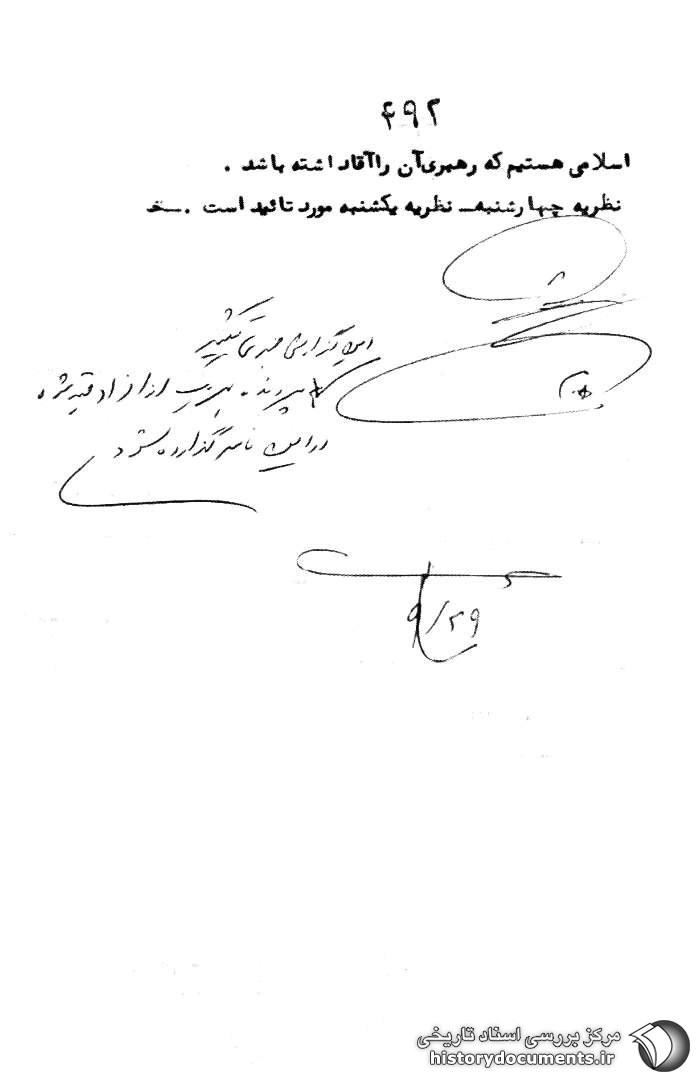 ۴۹۲
اسلامی هستیم که رهبری آن را آقا داشته باشد .
نظریه چهارشنبه ـ نظریه یکشنبه مورد تائید است . ـ خ
این گزارش خبر تا تکثیر
پرونده هر یک از افراد قید شده
در این نامه گذارده شود
۹/۲۹
مرکز بررسی اسناد تاریخی
historydocuments.ir